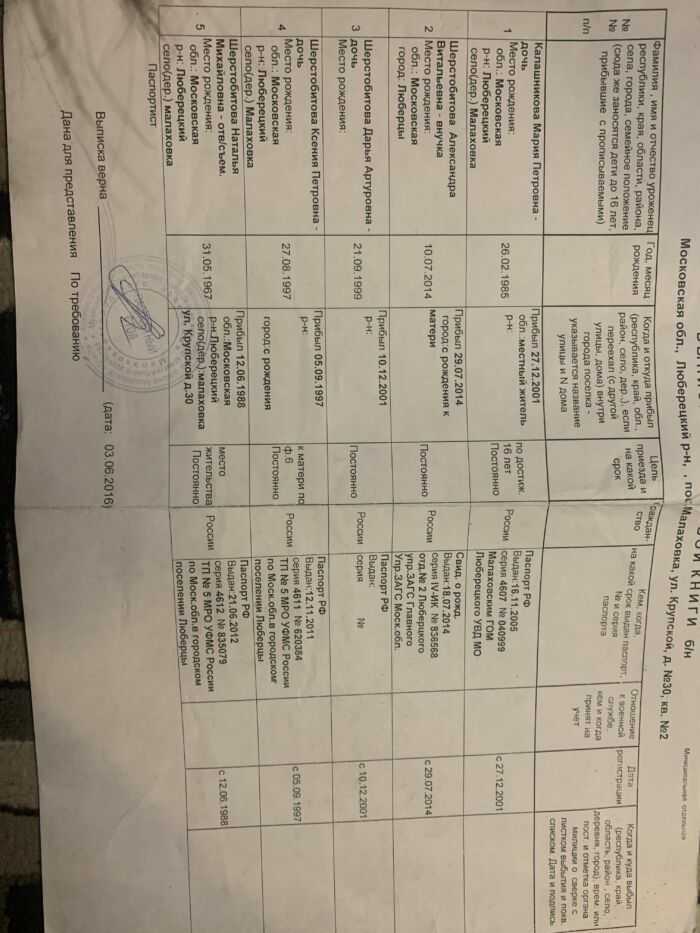 КНИГИ б/н
Муниципальная отдельная
Московская обл., Люберецкий р-н, , пос Малаховка, ул. Крупской, д. №30, кв. №2
№
№
п/п
Фамилия , имя и отчество уроженец
республики, края, области, района,
села, города, семейное положение
(сюда же заносятся дети до 16 лет,
прибывшие с прописываемыми)
Год, месяц
рождения
Когда и откуда прибыл
(республика, край, обл.,
район, село, дер..), если
переехал (с другой
улицы, дома) внутри
города поселка -
указывается название
улицы и N дома
Цель
приезда и
на какой
срок
Граждан-
ство
Кем, когда,
на какой срок выдан паспорт,
№ и серия
паспорта
Отношение
к военной
службе,
кем и когда
принят на
учет
Дата
регистрации
Когда и куда выбыл
(республика, край,
область, район , село,
деревня, город), врем. или
пост. и отметка органа
милиции о сверке с
листком выбытия и покв.
списком. Дата и подпись
1
Калашникова Мария Петровна -
дочь
Место рождения:
обл.: Московская
р-н: Люберецкий
село(дер.) Малаховка
26.02.1985
Прибыл 27.12.2001
обл.:местный житель
р-н:
по достиж.
16 лет
Постоянно
России
Паспорт РФ
Выдан:16.11.2005
серия 4607 № 040999
Малаховским ГОМ
Люберецкого УВД МО
с 27.12.2001
2
Шерстобитова Александра
Витальевна - внучка
Место рождения:
обл.: Московская
город: Люберцы
10.07.2014
Прибыл 29.07.2014
город:с рождения к
матери
Постоянно
России
Свид. о рожд.
Выдан:18.07.2014
серия IV-ИК № 836568
отд.№ 2 Люберецкого
упр.ЗАГС Главного
Упр.ЗАГС Моск.обл.
с 29.07.2014
3
Шерстобитова Дарья Артуровна -
дочь
Место рождения:
21.09.1999
Прибыл 10.12.2001
р-н:
Постоянно
России
Паспорт РФ
Выдан:
серия №
с 10.12.2001
4
Шерстобитова Ксения Петровна -
дочь
Место рождения:
обл.: Московская
р-н: Люберецкий
село(дер.) Малаховка
27.08.1997
Прибыл 05.09.1997
р-н:
город:с рождения
к матери по
ф.6
Постоянно
России
Паспорт РФ
Выдан:12.11.2011
серия 4611 № 620384
ТП № 5 МРО УФМС России
по Моск.обл.в городском
поселении Люберцы
с 05.09.1997
5
Шерстобитова Наталья
Михайловна - отв/съем.
Место рождения:
обл.: Московская
р-н: Люберецкий
село(дер.) малаховка
31.05.1967
Прибыл 12.06.1988
обл.:Московская
р-н:Люберецкий
село(дер.):малаховка
ул. Крупской д.30
место
жительства
Постоянно
России
Паспорт РФ
Выдан:21.06.2012
серия 4612 № 835079
ТП № 5 МРО УФМС России
по Моск.обл.в городском
поселении Люберцы
с 12.06.1988
Паспортист
Выписка верна (дата: 03.06.2016)
Дана для представления По требованию